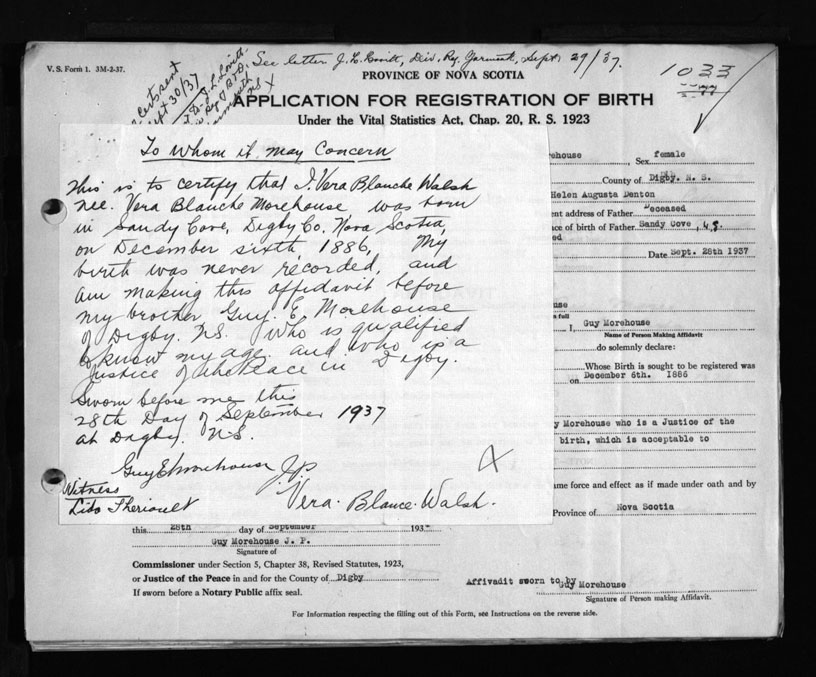 V. S. Form 1. 3M-2-37.
See letter J. L. Lovitt, Div. Reg. Yarmouth, Sept. 29/37.
Sept 30/37
1033
PROVINCE OF NOVA SCOTIA
APPLICATION FOR REGISTRATION OF BIRTH
Under the Vital Statistics Act, Chap. 20, R. S. 1923
To Whom it may Concern
This is to certify that I, Vera Blanche Walsh
nee. Vera Blanche Morehouse was born
in Sandy Cove, Digby Co. Nova Scotia,
on December sixth 1886, My
birth was never recorded, and
am making this affidavit before
my brother Guy. E. Morehouse
of Digby. N.S. Who is qualified
to know my age. and who is a
Justice of the Peace in Digby.
Sworn before me this
28th Day of September 1937
at Digby. N.S.
Guy E Morehouse J.P.
Witness
Lido Theriault
X
Vera. Blance. Walsh.
ehouse Sex female
County of Digby. N. S.
Helen Augusta Denton
ent address of Father Deceased
ce of birth of Father Sandy Cove, N.S.
ed
Date Sept. 28th 1937
use
n full
I, Guy Morehouse
Name of Person Making Affidavit
do solemnly declare:
Whose Birth is sought to be registered was
on December 6th. 1886
y Morehouse who is a Justice of the
birth, which is acceptable to
me force and effect as if made under oath and by
Province of Nova Scotia
this 28th day of September 193
Guy Morehouse J. P.
Signature of
Commissioner under Section 5, Chapter 38, Revised Statutes, 1923,
or Justice of the Peace in and for the County of Digby
If sworn before a Notary Public affix seal.
Affivadit sworn to by Guy Morehouse
Signature of Person making Affidavit.
For Information respecting the filling out of this Form, see Instructions on the reverse side.